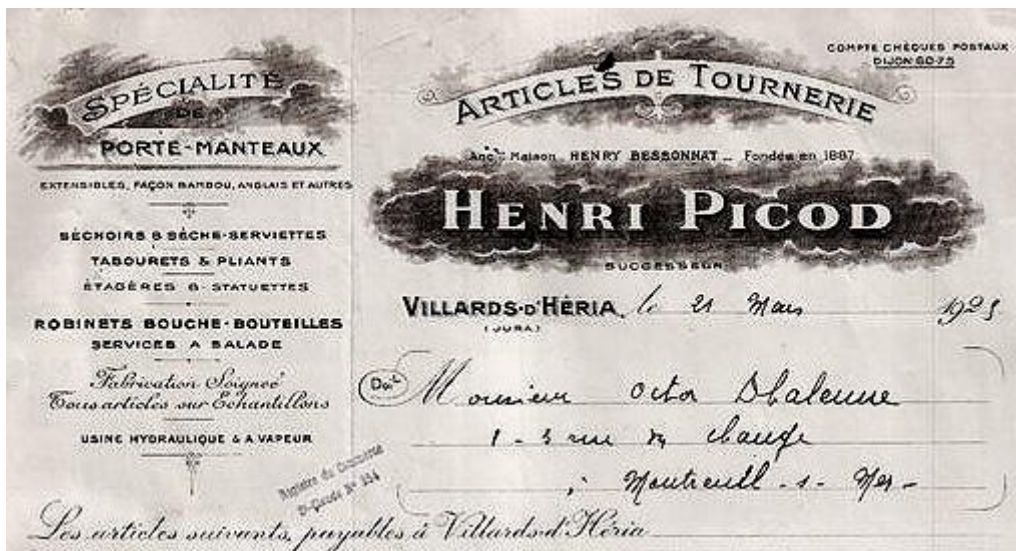 SPÉCIALITÉ
DE
PORTE-MANTEAUX
EXTENSIBLES, FAÇON BAMBOU, ANGLAIS ET AUTRES
SÉCHOIRS & SÈCHE-SERVIETTES
TABOURETS & PLIANTS
ÉTAGÈRES & STATUETTES
ROBINETS BOUCHE-BOUTEILLES
SERVICES A SALADE
Fabrication Soignée
Tous articles sur Echantillons
USINE HYDRAULIQUE & A VAPEUR
COMPTE CHÈQUES POSTAUX
DIJON 60-75
ARTICLES DE TOURNERIE
Ancne Maison HENRY BESSONNAT _ Fondée en 1887
HENRI PICOD
SUCCESSEUR
VILLARDS-D'HÉRIA, le 21 Mars 1925
(JURA)
Doit Monsieur Octor
1-3 rue du change
Montreuil-s-Mer-
Registre du Commerce
St-Claude N° 334
Les articles suivants, payables à Villards-d'Héria